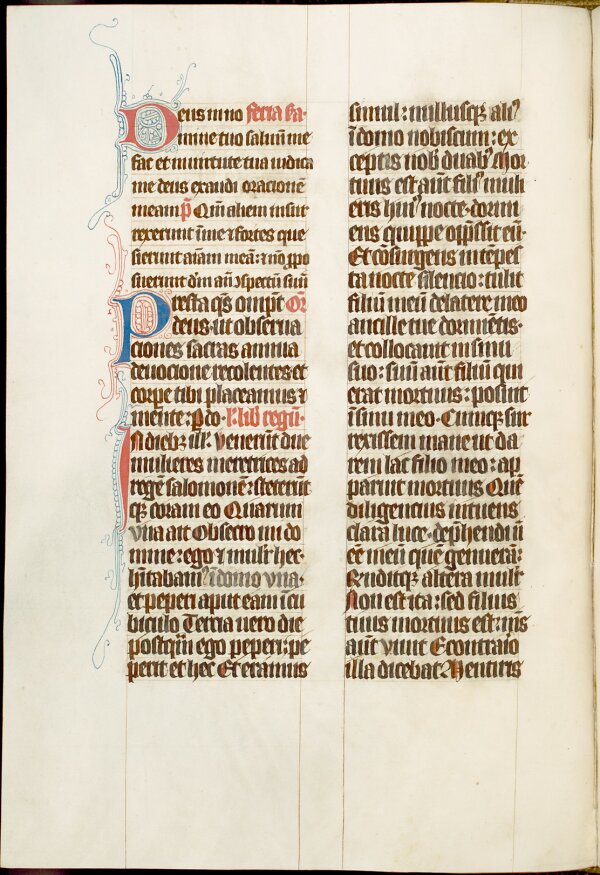 Deus in no feria ẜa
mine tuo saluū me
fac et in uirtute tua iudica
me deus exaudi oracionē
meam p̄ Qm̄ alieni insur
rexerunt ī me ⁊ fortes que
sierunt aīam meā: ⁊ nō ꝓpo
suerunt dm̄ añ ꝯspectū suū
Presta qs ompt̄ Or̄
deus · ut obserua
ciones sacras annua
deuocione recolentes et
corpe tibi placeamus ⁊
mente: P do · l' lib regū ·
In diebȝ ill' · Venerūt due
mulieres meretrices ad
regē salomonē: steterūt
qȝ coram eo Quarum
vna ait Obsecro mi do
mine: ego ⁊ mulr hec ·
hītabamꝰ ī domo vna ·
et peperi aput eam ī cu
biculo Tercia uero die
postqū ego peperi: pe
perit et hec Et eramus
simul: nullusqȝ aliꝰ
ī domo nobiscum: ex
ceptis nob duabꝰ Mor
tuus est aūt filiꝰ muli
eris huiꝰ nocte · dormi
ens quippe opp̄ssit eū ·
Et cōsurgens intēpes
ta nocte silencio: tulit
filiū meū de latere meo
ancille tue dormiētis ·
et collocauit in sinu
suo: suū aūt filiū qui
erat mortuus: posuit
ī sinu meo · Cumqȝ sur
rexissem mane ut da
rem lac filio meo: ap
paruit mortuus Quē
diligencius intuens
clara luce · dep̄hendi nō
eē meū quē genuerā:
Rnditqȝ altera mulr
Non est ita: sed filius
tuus mortuus est: mꝰ
aūt viuit Econtraio
illa dicebat Mentiris